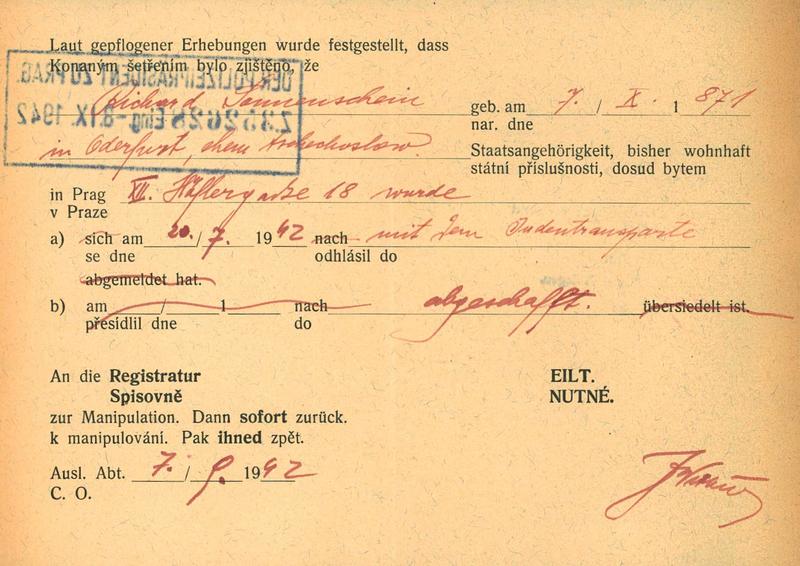 Laut gepflogener Erhebungen wurde festgestellt, dass
Konaným šetřením bylo zjištěno, že
DER POLIZEIPRÄSIDENT ZU PRAG.
Z.352628 Eing -8.IX.1942
Richard Sonnenschein geb. am 7. / X. 1 871
nar. dne
in Oderfurt, ehem tschechoslow. Staatsangehörigkeit, bisher wohnhaft
státní příslušnosti, dosud bytem
in Prag XII. 18 wurde
v Praze
a) sich am 20. / 7. 1942 nach mit dem Judentransporte
se dne odhlásil do
abgemeldet hat.
b) am / 1 nach abgeschafft. übersiedelt ist.
přesídlil dne do
An die Registratur EILT.
Spisovně NUTNÉ.
zur Manipulation. Dann sofort zurück.
k manipulování. Pak ihned zpět.
Ausl. Abt. 7. / 9. 1942
C. O.